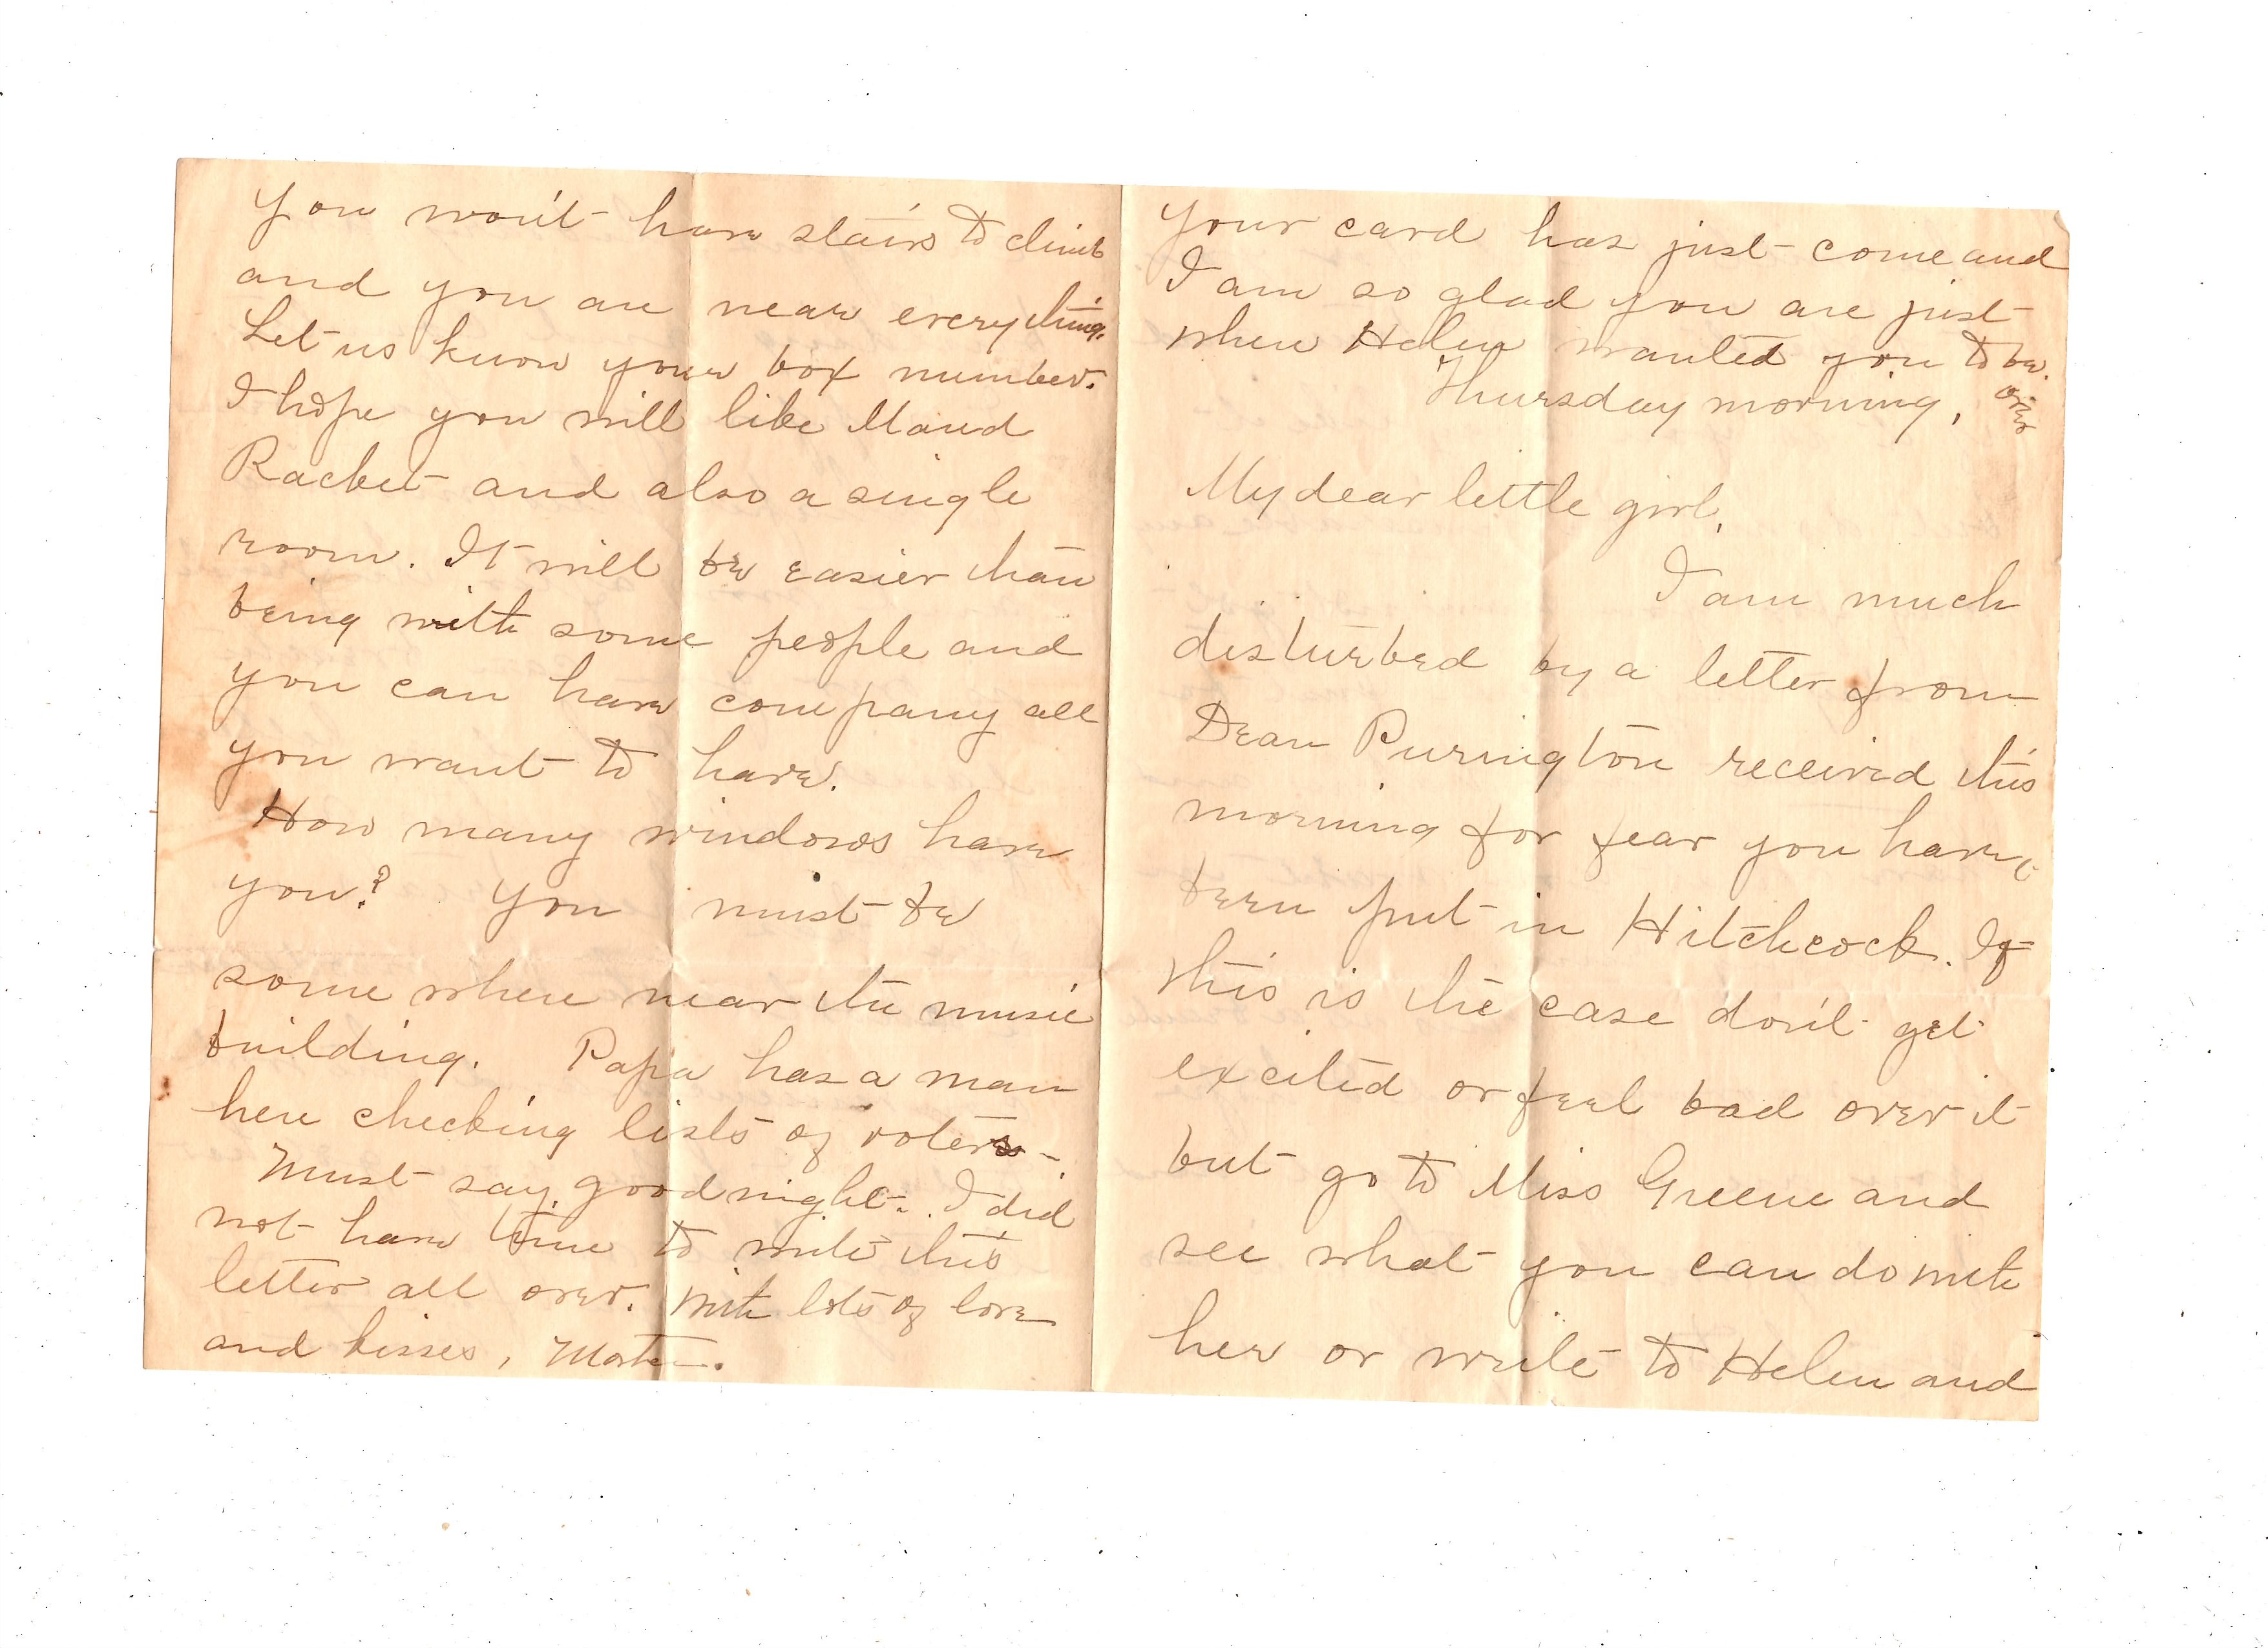 You won't have stairs to climb
and you are near everything.
Let us know your box number.
I hope you will like Maud
Racket and also a single
room. It will be easier than
being with some people and
you can have company all
you want to have.
How many windows have
you? You must be
some where near the music
building. Papa has a man
here checking lists of voters.
Must say good night. I did
not have time to write this
letter all over. With lots of love
and kisses, Mother.
Your card has just come and
I am so glad you are just
where Helen wanted you to be.
over
Thursday morning,
My dear little girl,
I am much
disturbed by a letter from
Dean Purington received this
morning for fear you have
been put in Hitchcock. If
this is the case don't get
excited or feel bad over it
but go to Miss Greene and
see what you can do with
her or write to Helen and